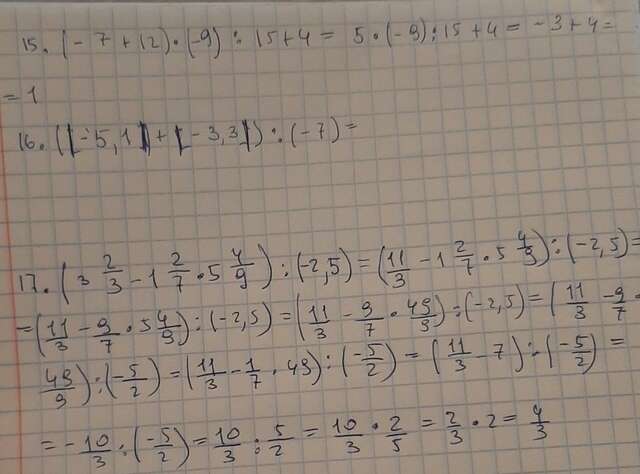 15. (-7+12)·(-9):15+4= 5·(-9):15+4= -3+4=
=1
16. (|-5,1|+|-3,3|):(-7)=
17. (3 2/3 - 1 2/7 · 5 4/9):(-2,5)=(11/3 - 1 2/7 · 5 4/9):(-2,5)=
=(11/3 - 9/7 · 5 4/9):(-2,5)=(11/3 - 9/7 · 49/9):(-2,5)=(11/3 - 9/7 ·
49/9):(-5/2)=(11/3 - 1/7 · 49):(-5/2)=(11/3 - 7):(-5/2)=
=-10/3:(-5/2)=10/3:5/2=10/3·2/5=2/3·2=4/3